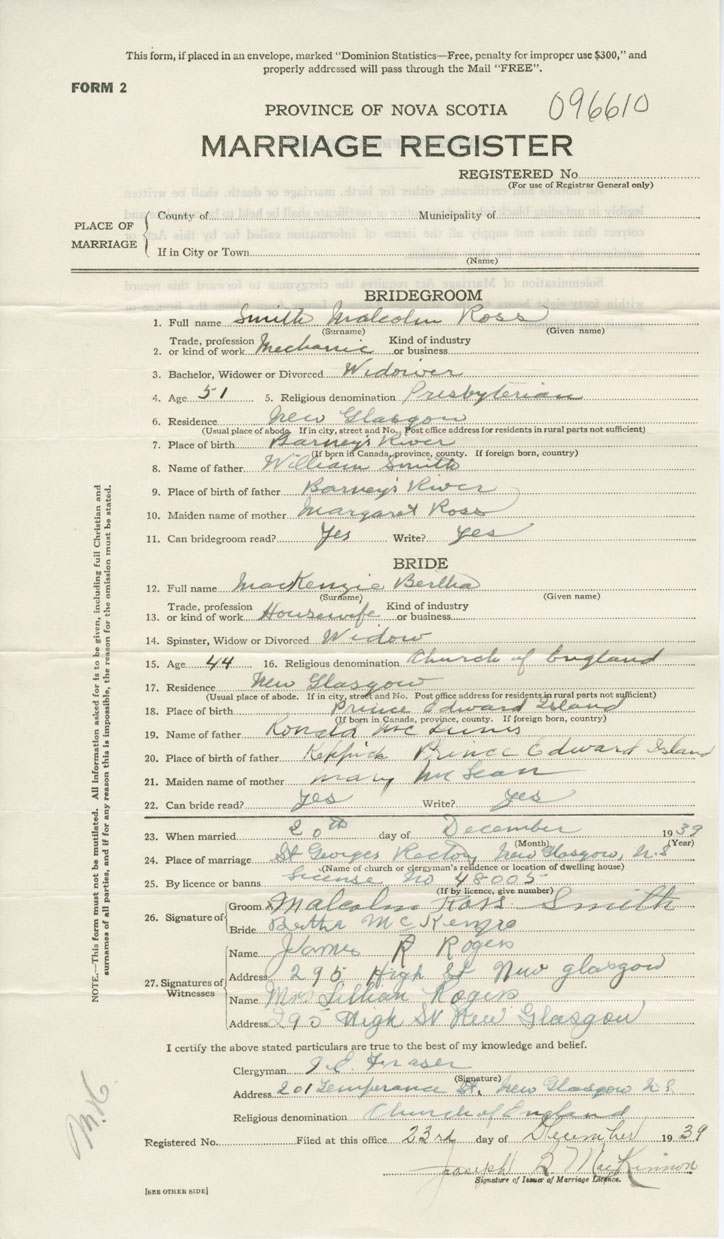 This form, if placed in an envelope, marked "Dominion Statistics—Free, penalty for improper use $300," and
properly addressed will pass through the Mail "FREE".
FORM 2
PROVINCE OF NOVA SCOTIA 096610
MARRIAGE REGISTER
REGISTERED No.
(For use of Registrar General only)
PLACE OF MARRIAGE
County of Municipality of
If in City or Town
(Name)
BRIDEGROOM
1. Full name Smith Malcolm Ross
(Surname) (Given name)
2. Trade, profession or kind of work Mechanic Kind of industry or business
3. Bachelor, Widower or Divorced Widower
4. Age 51 5. Religious denomination Presbyterian
6. Residence New Glasgow
(Usual place of abode. If in city, street and No. Post office address for residents in rural parts not sufficient)
7. Place of birth Barney's River
(If born in Canada, province, county. If foreign born, country)
8. Name of father William Smith
9. Place of birth of father Barney's River
10. Maiden name of mother Margaret Ross
11. Can bridegroom read? Yes Write? Yes
BRIDE
12. Full name MacKenzie Bertha
(Surname) (Given name)
13. Trade, profession or kind of work Housewife Kind of industry or business
14. Spinster, Widow or Divorced Widow
15. Age 44 16. Religious denomination Church of England
17. Residence New Glasgow
(Usual place of abode. If in city, street and No. Post office address for residents in rural parts not sufficient)
18. Place of birth Prince Edward Island
(If born in Canada, province, county. If foreign born, country)
19. Name of father Ronald
20. Place of birth of father Prince Edward Island
21. Maiden name of mother Mary McLean
22. Can bride read? Yes Write? Yes
23. When married 20th day of December 1939
(Month) (Year)
24. Place of marriage St Georges Rectory, New Glasgow, N.S
(Name of church or clergyman's residence or location of dwelling house)
25. By licence or banns License No 48005
(If by licence, give number)
26. Signature of
Groom X Malcolm Ross Smith
Bride Bertha McKenzie
27. Signatures of Witnesses
Name James R Rogers
Address 295 High St New glasgow
Name Mrs Lillian Rogers
Address 295 High St New Glasgow
I certify the above stated particulars are true to the best of my knowledge and belief.
Clergyman Fraser
(Signature)
Address 201 Temperance St, New Glasgow N.S.
Religious denomination Church of England
Registered No. Filed at this office 23rd day of December 1939
Joseph MacKinnon
Signature of Issuer of Marriage Licence.
[SEE OTHER SIDE]
NOTE.—This form must not be mutilated. All Information asked for is to be given, including full Christian and
surnames of all parties, and if for any reason this is impossible, the reason for the omission must be stated.